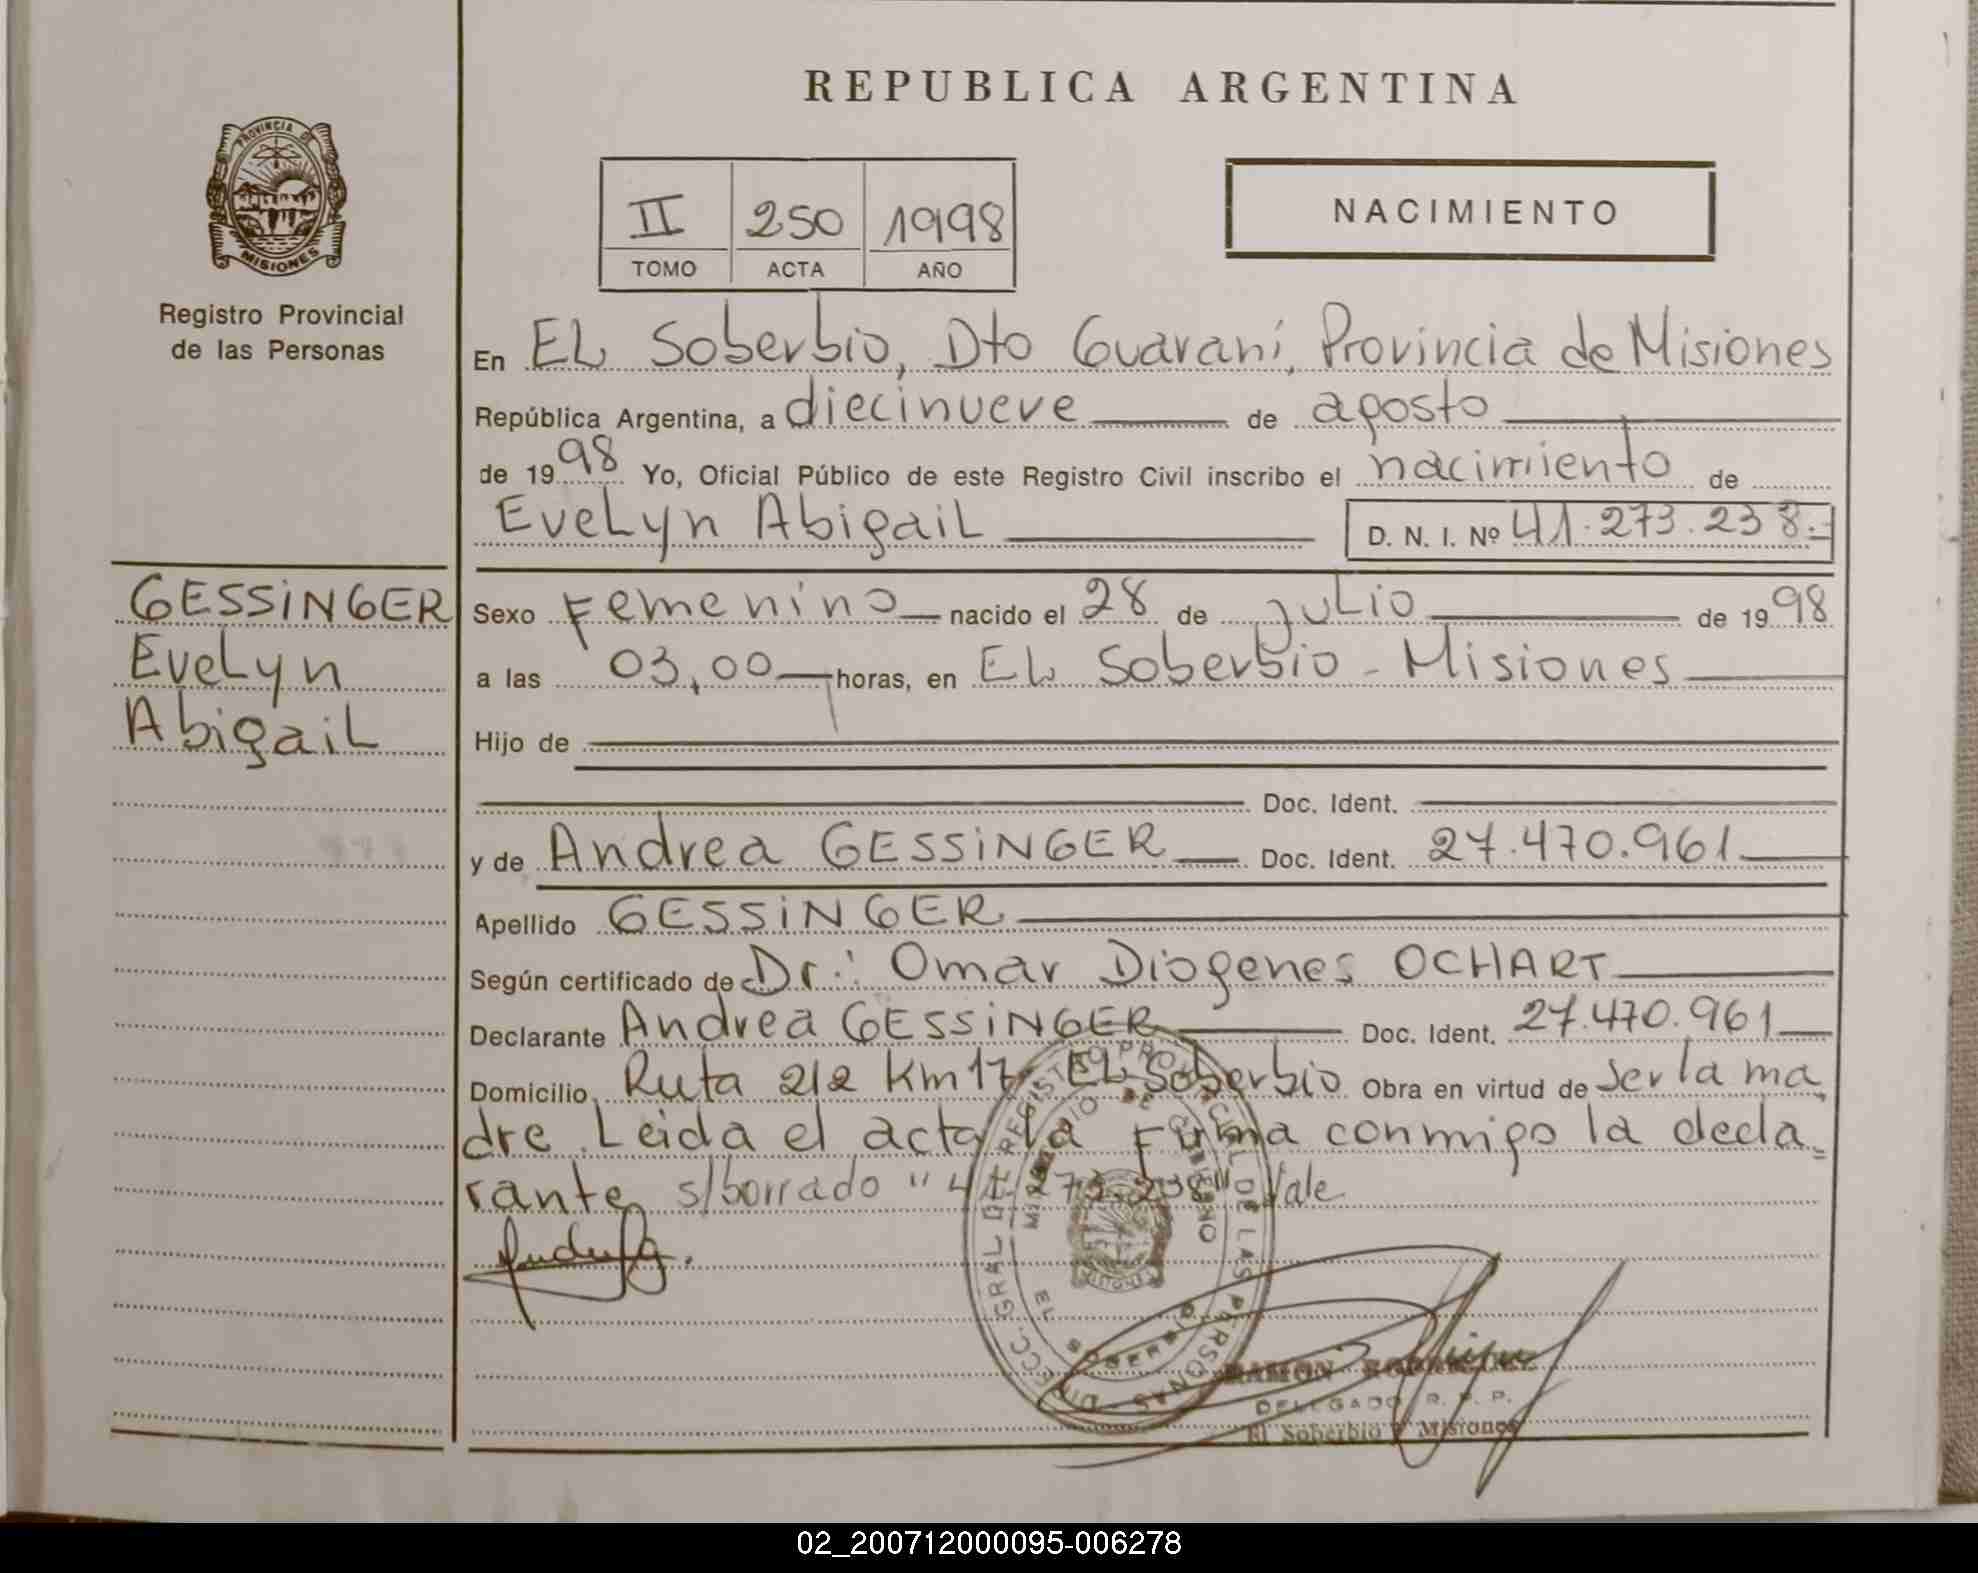 REPUBLICA ARGENTINA
PROVINCIA DE
MISIONES
Registro Provincial
de las Personas
II 250 1998
TOMO ACTA AÑO
NACIMIENTO
En EL Soberbio, Dto Guaraní, Provincia de Misiones
República Argentina, a diecinueve de agosto
de 1998 Yo, Oficial Público de este Registro Civil inscribo el nacimiento de
Evelyn Abigail D. N. I. Nº 41.273.238.-
GESSINGER
Evelyn
Abigail
Sexo Femenino nacido el 28 de Julio de 1998
a las 03,00 horas, en EL Soberbio - Misiones
Hijo de
Doc. Ident.
y de Andrea GESSINGER Doc. Ident. 27.470.961
Apellido GESSINGER
Según certificado de Dr: Omar Diogenes OCHART
Declarante Andrea GESSINGER Doc. Ident. 27.470.961
Domicilio Ruta 212 Km 17 EL Soberbio Obra en virtud de ser la ma
dre. Leida el acta la Firma conmigo la decla
rante s/borrado "41.273.238" Vale
DIRECC. GRAL DEL REGISTRO PROVINCIAL DE LAS PERSONAS
MINISTERIO DE GOBIERNO
EL SOBERBIO
MISIONES
RAMON
DELEGADO R. P. P.
El Soberbio Misiones
02_200712000095-006278